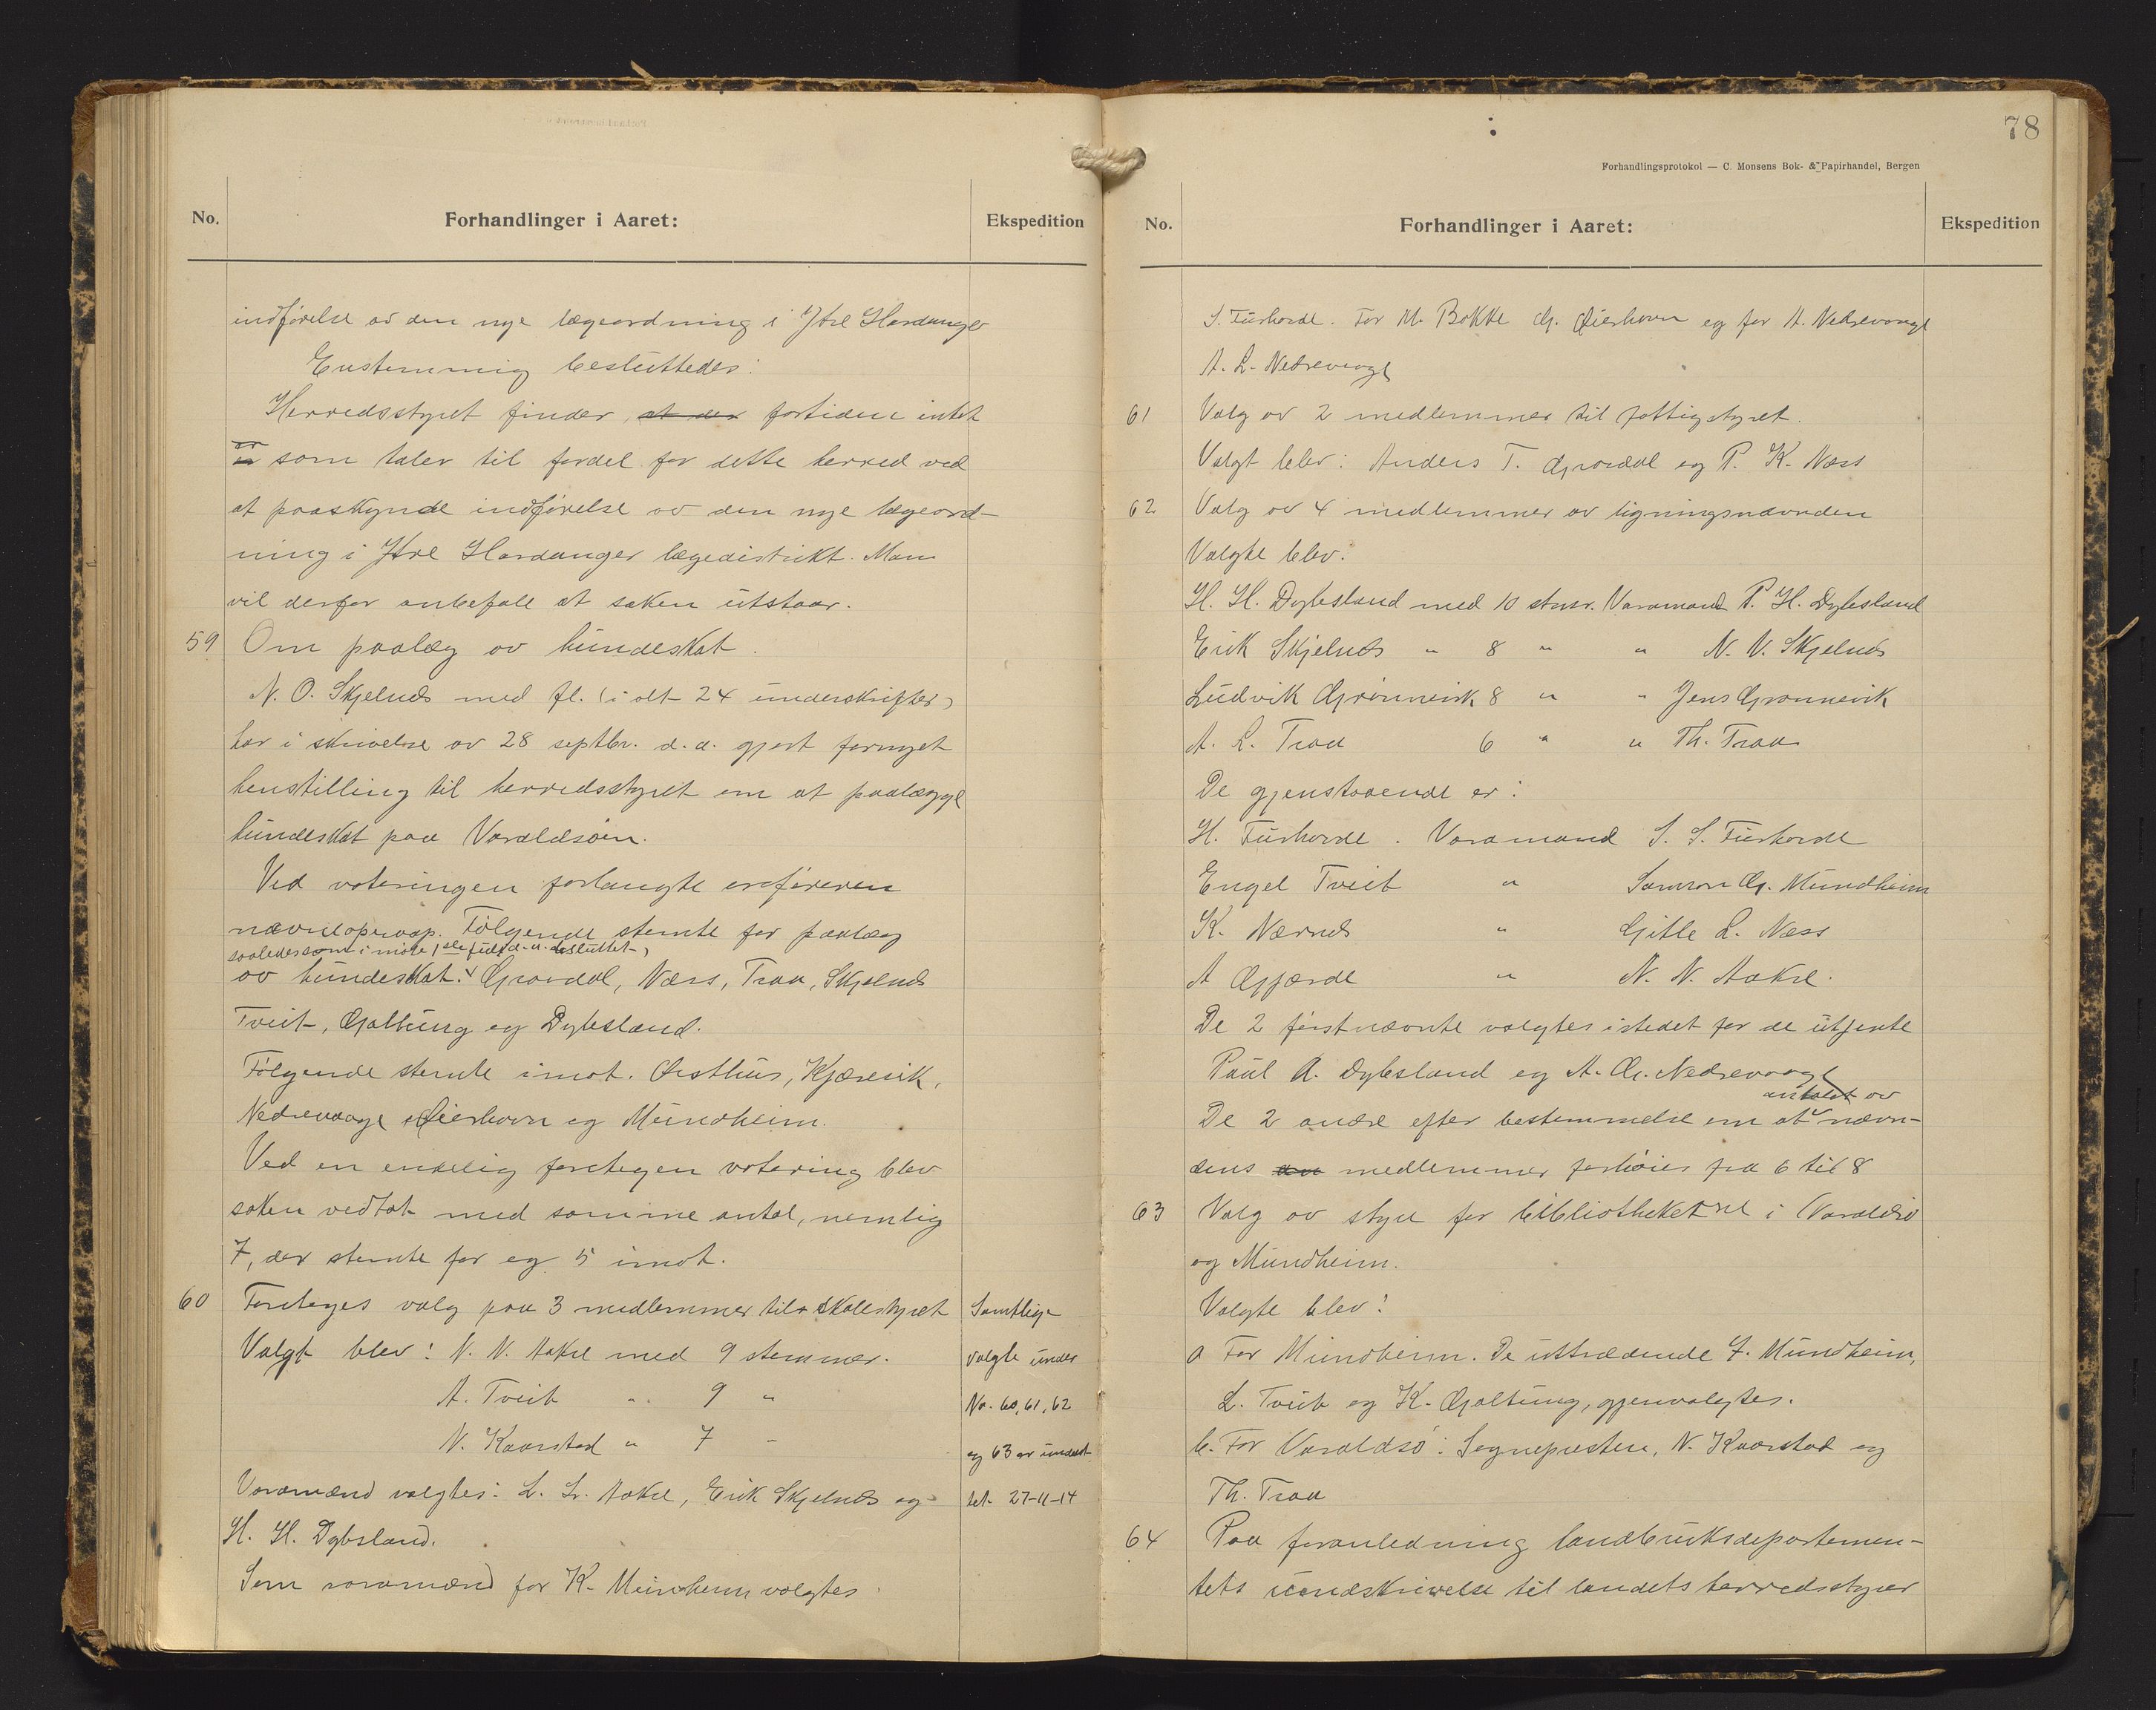 No. Forhandlinger i Aaret: Ekspedition
indførelse av den nye lægeordning i Ytre Hardanger
Enstemmig besluttedes:
Herredsstyret finder at der fortiden intet
er som taler til fordel for dette herred ved
at paaskynde indførelse av den nye lægeord-
ning i Ytre Hardanger lægedistrikt. Man
vil derfor anbefale at saken utstaar.
59 Om paalæg av hundeskat.
N. O. Skjelnes med fl. (i alt 24 underskrifter)
har i skrivelse av 28 septbr. d.a. gjort fornyet
henstilling til herredsstyret om at paalægge
hundeskat paa Varaldsøen.
Ved voteringen forlangte ordføreren
navneoprop. Følgende stemte for paalæg
saaledes som i møte 1ste juli d.a. besluttet,
av hundeskat. Gravdal, Næss, Traa, Skjelnes
Tveit, Galtung og Dybsland.
Følgende stemte imot. Øisthus, Kjærevik,
Nedrevaage Øierhavn og Mundheim.
Ved en endelig foretagen votering blev
saken vedtat med samme antal, nemlig
7, der stemte for og 5 imot.
60 Foretages valg paa 3 medlemmer til skolestyret
Valgt blev: N. N. Aakre med 9 stemmer.
A. Tveit " 9 "
N. Kaarstad " 7 "
Varamænd valgtes: L. L. Aakre, Erik Skjelnes og
H. H. Dybsland.
Som varamænd for K. Mundheim valgtes
Samtlige
valgte under
No. 60, 61, 62
og 63 er underret-
tet 27-11-14
78
Forhandlingsprotokol — C. Monsens Bok- & Papirhandel, Bergen
No. Forhandlinger i Aaret: Ekspedition
S. Furhovde. For M. Bakke G. Øierhavn og for A. Nedrevaage
A. L. Nedrevaage
61 Valg av 2 medlemmer til fattigstyret.
Valgt blev: Anders T. Gravdal og P. K. Næss
62 Valg av 4 medlemmer av ligningsnævnden
Valgte blev.
H. H. Dybesland med 10 stmr. Varamand P. H. Dybesland
Erik Skjelnes " 8 " " N. N. Skjelnes
Ludvik Grønnevik 8 " " Jens Grønnevik
A. L. Traa 6 " " Th. Traa
De gjenstaaende er:
H. Furhovde. Varamand S. S. Furhovde
Engel Tveit " Samson G. Mundheim
K. Nærnes " Gitle L. Næss
A Gjærde " N. N. Aakre.
De 2 førstnævnte valgtes istedet for de utjente
Paul A. Dybesland og A. G. Nedrevaage
antalet av
De 2 andre efter bestemmelse om at nævn-
dens medlemmer forhøies fra 6 til 8
63 Valg av styre for bibliothekerne i Varaldsø
og Mundheim.
Valgte blev:
a For Mundheim. De uttrædende J. Mundheim,
L. Tveit og K. Galtung, gjenvalgtes.
b. For Varaldsø: Sognepresten, N. Kaarstad og
Th. Traa
64 Paa foranledning landbruksdepartemen-
tets rundskrivelse til landets herredsstyrer